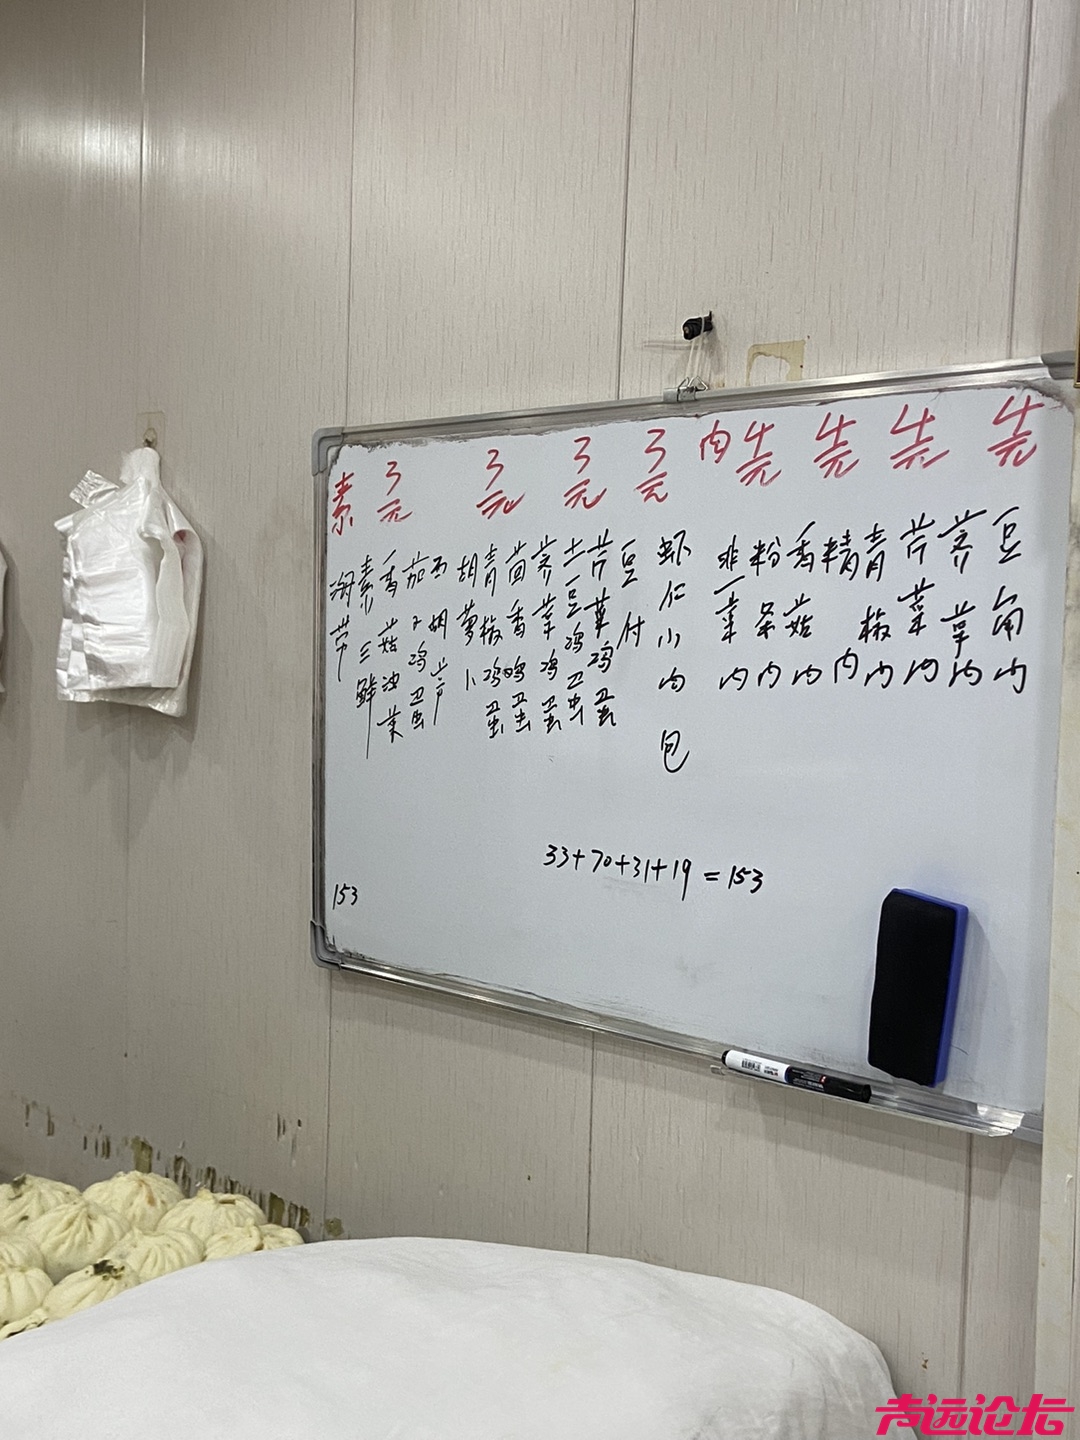 素 3元 3元 3元 3元 肉 4元 4元 4元 4元
海带
素三鲜
香菇油菜
茄子鸡蛋
西胡芦
胡萝卜
青椒鸡蛋
茴香鸡蛋
荠菜鸡蛋
土豆鸡蛋
芹菜鸡蛋
豆付
虾仁小肉包
韭菜肉
粉条肉
香菇肉
精肉
青椒肉
芹菜肉
荠菜肉
豆角肉
33+70+31+19=153
153
声远论坛